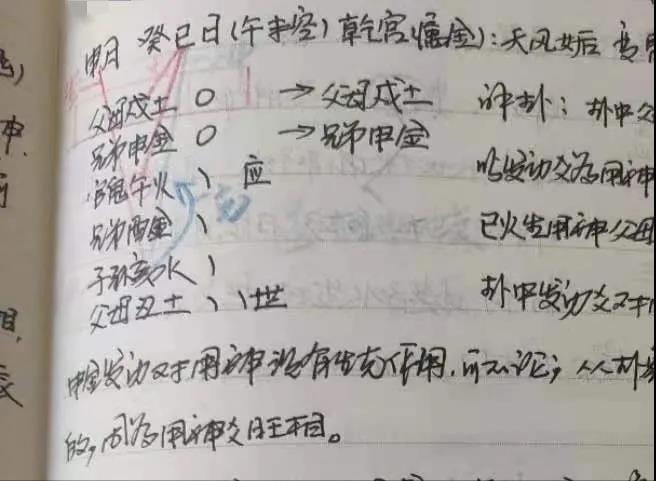 申月 癸巳日(午未空) 乾宫(属金):天风姤
父母戌土 O → 父母戌土 评卦:卦中父
兄弟申金 O → 兄弟申金
官鬼午火 、 应 发动爻为用神
兄弟酉金 、 巳火生用神父母
子孙亥水 、
父母丑土 、、世 卦中发动爻对
申金发动对于用神没有生克作用,所以不论;从卦
的,因为用神爻旺相。